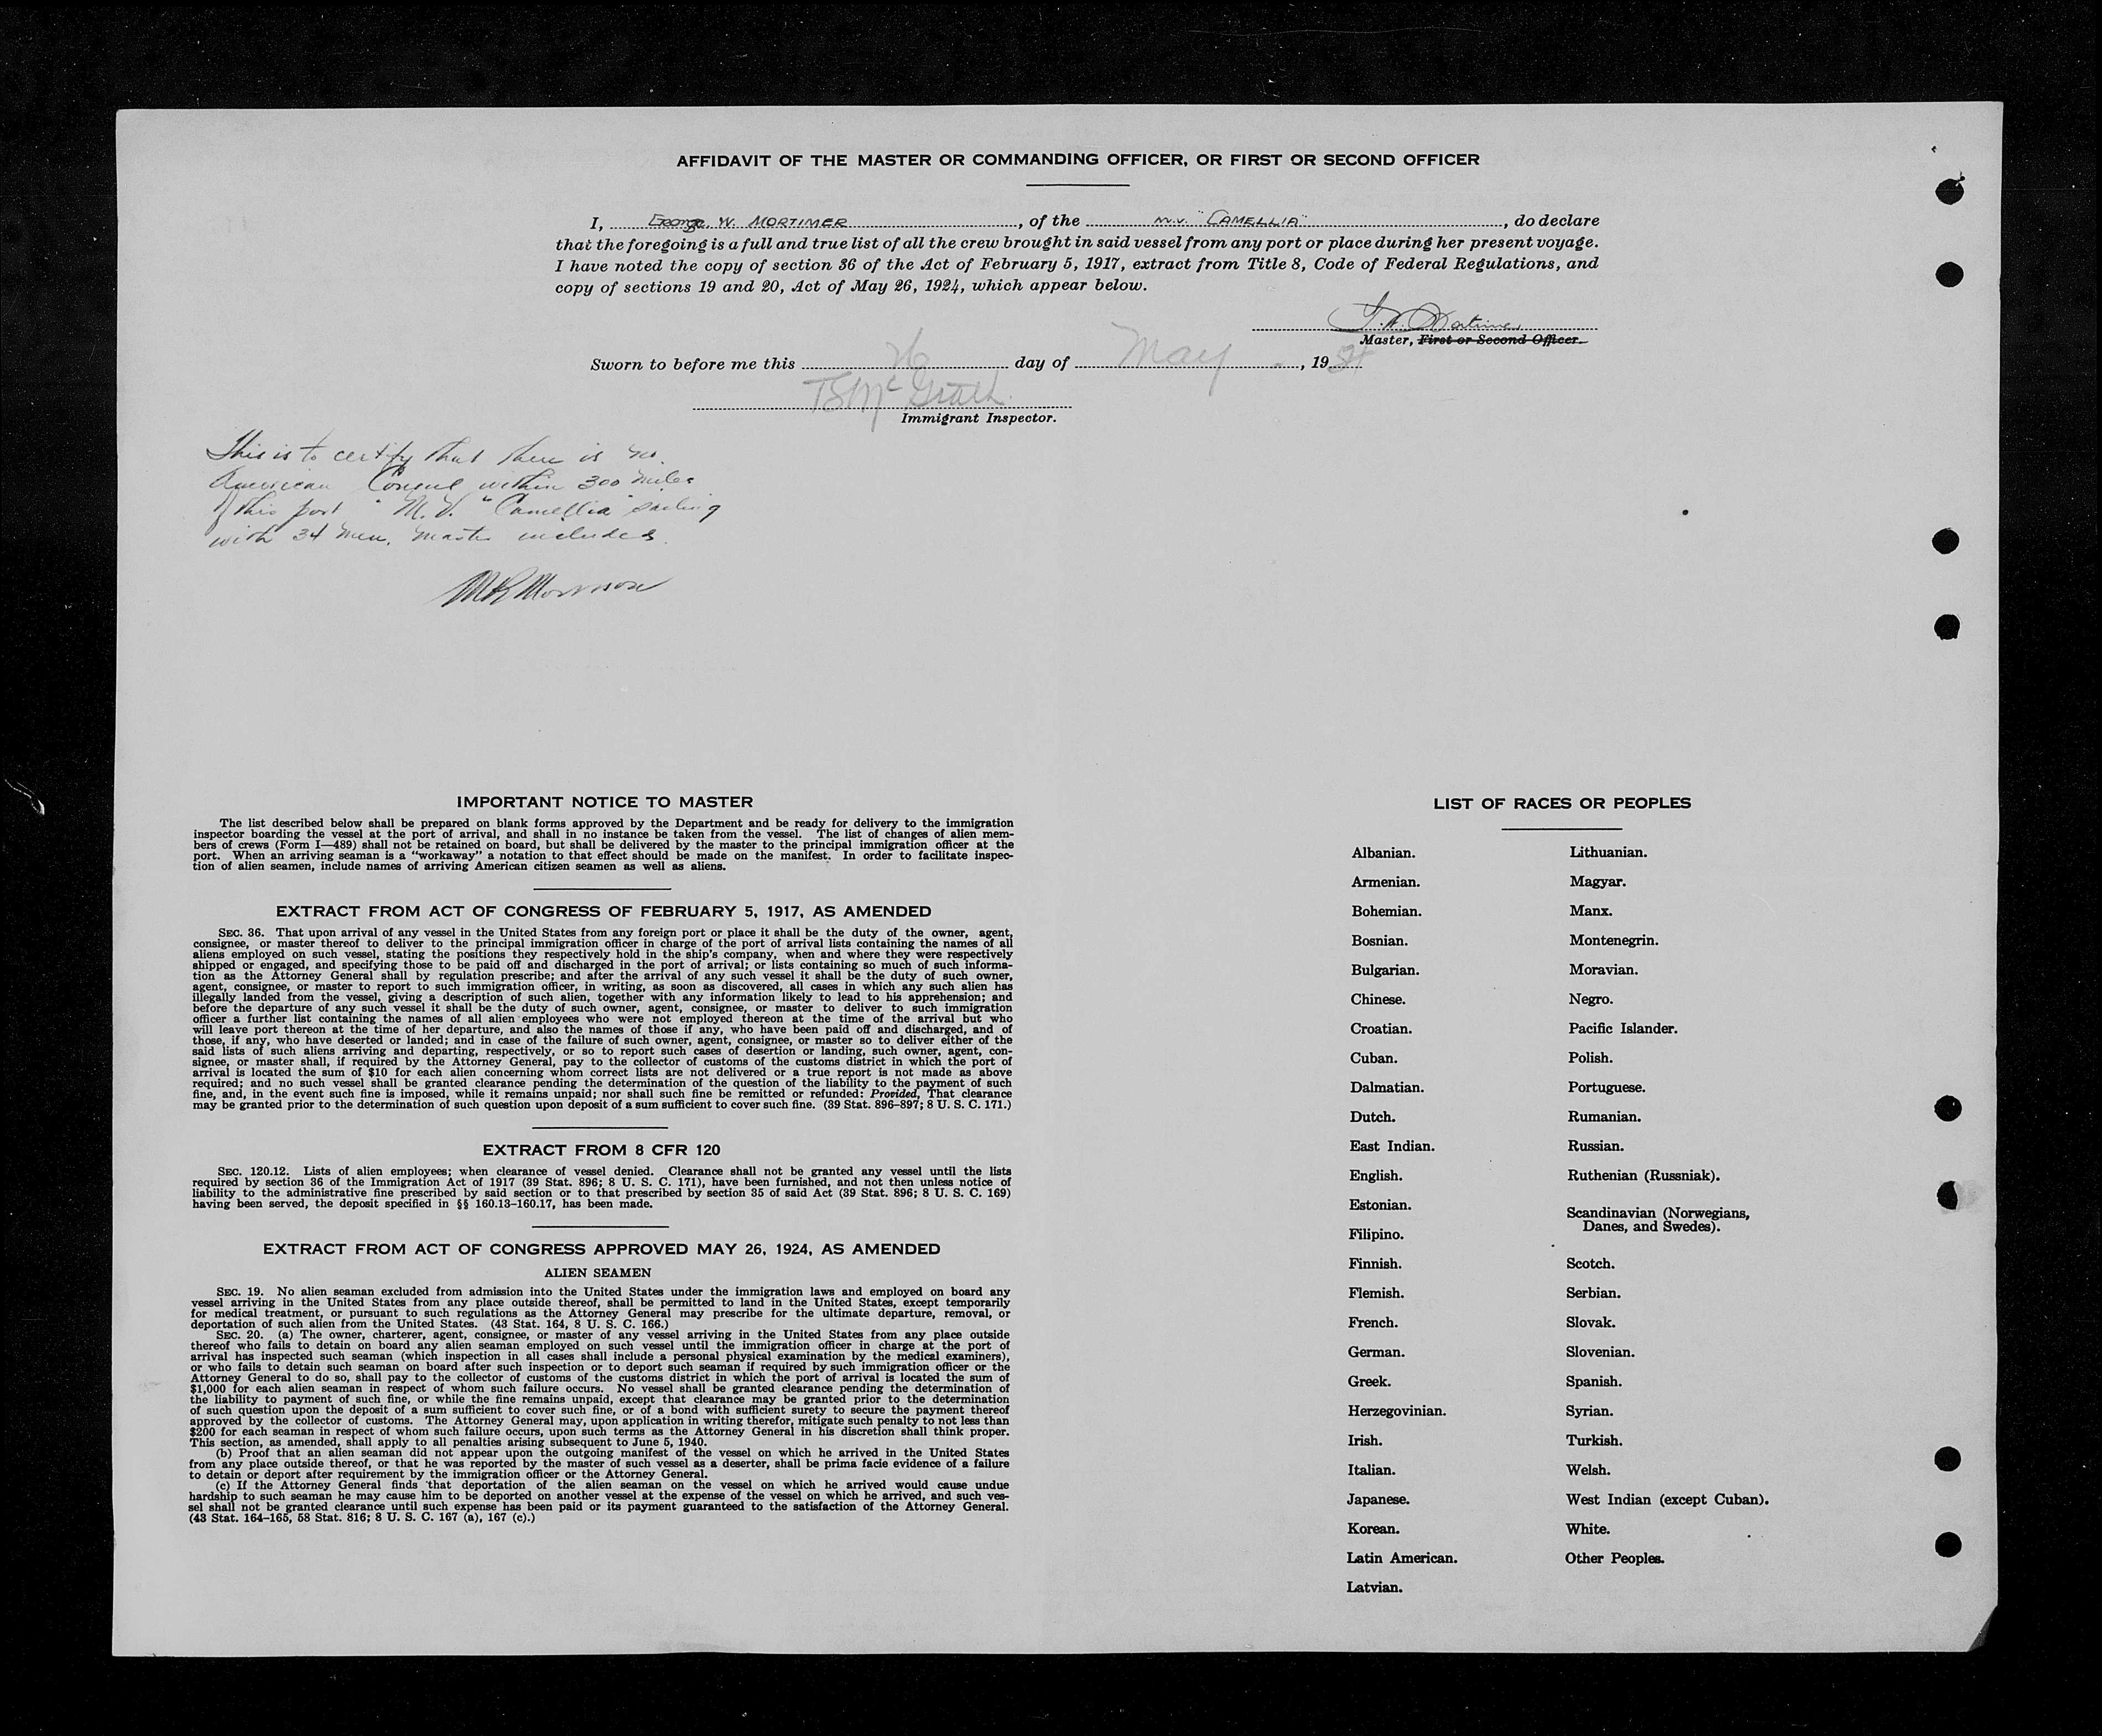 AFFIDAVIT OF THE MASTER OR COMMANDING OFFICER, OR FIRST OR SECOND OFFICER
I, George W. MORTIMER, of the M.V. "CAMELLIA", do declare
that the foregoing is a full and true list of all the crew brought in said vessel from any port or place during her present voyage.
I have noted the copy of section 36 of the Act of February 5, 1917, extract from Title 8, Code of Federal Regulations, and
copy of sections 19 and 20, Act of May 26, 1924, which appear below.
Mortimer
Master, First or Second Officer.
Sworn to before me this 26 day of May, 19
McGrath
Immigrant Inspector.
This is to certify that there is no
American Consul within 300 miles
of this port "M.V. "Camellia" sailing
with 34 men, master included.
MR Morrison
IMPORTANT NOTICE TO MASTER
The list described below shall be prepared on blank forms approved by the Department and be ready for delivery to the immigration
inspector boarding the vessel at the port of arrival, and shall in no instance be taken from the vessel. The list of changes of alien mem-
bers of crews (Form I—489) shall not be retained on board, but shall be delivered by the master to the principal immigration officer at the
port. When an arriving seaman is a "workaway" a notation to that effect should be made on the manifest. In order to facilitate inspec-
tion of alien seamen, include names of arriving American citizen seamen as well as aliens.
EXTRACT FROM ACT OF CONGRESS OF FEBRUARY 5, 1917, AS AMENDED
SEC. 36. That upon arrival of any vessel in the United States from any foreign port or place it shall be the duty of the owner, agent,
consignee, or master thereof to deliver to the principal immigration officer in charge of the port of arrival lists containing the names of all
aliens employed on such vessel, stating the positions they respectively hold in the ship's company, when and where they were respectively
shipped or engaged, and specifying those to be paid off and discharged in the port of arrival; or lists containing so much of such informa-
tion as the Attorney General shall by regulation prescribe; and after the arrival of any such vessel it shall be the duty of such owner,
agent, consignee, or master to report to such immigration officer, in writing, as soon as discovered, all cases in which any such alien has
illegally landed from the vessel, giving a description of such alien, together with any information likely to lead to his apprehension; and
before the departure of any such vessel it shall be the duty of such owner, agent, consignee, or master to deliver to such immigration
officer a further list containing the names of all alien employees who were not employed thereon at the time of the arrival but who
will leave port thereon at the time of her departure, and also the names of those if any, who have been paid off and discharged, and of
those, if any, who have deserted or landed; and in case of the failure of such owner, agent, consignee, or master so to deliver either of the
said lists of such aliens arriving and departing, respectively, or so to report such cases of desertion or landing, such owner, agent, con-
signee, or master shall, if required by the Attorney General, pay to the collector of customs of the customs district in which the port of
arrival is located the sum of $10 for each alien concerning whom correct lists are not delivered or a true report is not made as above
required; and no such vessel shall be granted clearance pending the determination of the question of the liability to the payment of such
fine, and, in the event such fine is imposed, while it remains unpaid; nor shall such fine be remitted or refunded: Provided, That clearance
may be granted prior to the determination of such question upon deposit of a sum sufficient to cover such fine. (39 Stat. 896–897; 8 U. S. C. 171.)
EXTRACT FROM 8 CFR 120
SEC. 120.12. Lists of alien employees; when clearance of vessel denied. Clearance shall not be granted any vessel until the lists
required by section 36 of the Immigration Act of 1917 (39 Stat. 896; 8 U. S. C. 171), have been furnished, and not then unless notice of
liability to the administrative fine prescribed by said section or to that prescribed by section 35 of said Act (39 Stat. 896; 8 U. S. C. 169)
having been served, the deposit specified in §§ 160.13–160.17, has been made.
EXTRACT FROM ACT OF CONGRESS APPROVED MAY 26, 1924, AS AMENDED
ALIEN SEAMEN
SEC. 19. No alien seaman excluded from admission into the United States under the immigration laws and employed on board any
vessel arriving in the United States from any place outside thereof, shall be permitted to land in the United States, except temporarily
for medical treatment, or pursuant to such regulations as the Attorney General may prescribe for the ultimate departure, removal, or
deportation of such alien from the United States. (43 Stat. 164, 8 U. S. C. 166.)
SEC. 20. (a) The owner, charterer, agent, consignee, or master of any vessel arriving in the United States from any place outside
thereof who fails to detain on board any alien seaman employed on such vessel until the immigration officer in charge at the port of
arrival has inspected such seaman (which inspection in all cases shall include a personal physical examination by the medical examiners),
or who fails to detain such seaman on board after such inspection or to deport such seaman if required by such immigration officer or the
Attorney General to do so, shall pay to the collector of customs of the customs district in which the port of arrival is located the sum of
$1,000 for each alien seaman in respect of whom such failure occurs. No vessel shall be granted clearance pending the determination of
the liability to payment of such fine, or while the fine remains unpaid, except that clearance may be granted prior to the determination
of such question upon the deposit of a sum sufficient to cover such fine, or of a bond with sufficient surety to secure the payment thereof
approved by the collector of customs. The Attorney General may, upon application in writing therefor, mitigate such penalty to not less than
$200 for each seaman in respect of whom such failure occurs, upon such terms as the Attorney General in his discretion shall think proper.
This section, as amended, shall apply to all penalties arising subsequent to June 5, 1940.
(b) Proof that an alien seaman did not appear upon the outgoing manifest of the vessel on which he arrived in the United States
from any place outside thereof, or that he was reported by the master of such vessel as a deserter, shall be prima facie evidence of a failure
to detain or deport after requirement by the immigration officer or the Attorney General.
(c) If the Attorney General finds that deportation of the alien seaman on the vessel on which he arrived would cause undue
hardship to such seaman he may cause him to be deported on another vessel at the expense of the vessel on which he arrived, and such ves-
sel shall not be granted clearance until such expense has been paid or its payment guaranteed to the satisfaction of the Attorney General.
(43 Stat. 164–165, 58 Stat. 816; 8 U. S. C. 167 (a), 167 (c).)
LIST OF RACES OR PEOPLES
Albanian.
Armenian.
Bohemian.
Bosnian.
Bulgarian.
Chinese.
Croatian.
Cuban.
Dalmatian.
Dutch.
East Indian.
English.
Estonian.
Filipino.
Finnish.
Flemish.
French.
German.
Greek.
Herzegovinian.
Irish.
Italian.
Japanese.
Korean.
Latin American.
Latvian.
Lithuanian.
Magyar.
Manx.
Montenegrin.
Moravian.
Negro.
Pacific Islander.
Polish.
Portuguese.
Rumanian.
Russian.
Ruthenian (Russniak).
Scandinavian (Norwegians,
Danes, and Swedes).
Scotch.
Serbian.
Slovak.
Slovenian.
Spanish.
Syrian.
Turkish.
Welsh.
West Indian (except Cuban).
White.
Other Peoples.